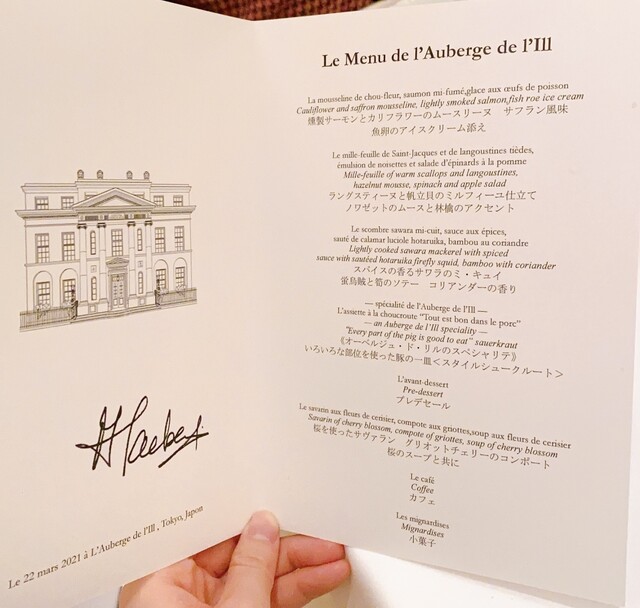 Le 22 mars 2021 à L'Auberge de l'Ill , Tokyo, Japon
Le Menu de l'Auberge de l'Ill
La mousseline de chou-fleur, saumon mi-fumé,glace aux œufs de poisson
Cauliflower and saffron mousseline, lightly smoked salmon,fish roe ice cream
燻製サーモンとカリフラワーのムースリーヌ　サフラン風味
魚卵のアイスクリーム添え
Le mille-feuille de Saint-Jacques et de langoustines tièdes,
émulsion de noisettes et salade d'épinards à la pomme
Mille-feuille of warm scallops and langoustines,
hazelnut mousse, spinach and apple salad
ラングスティーヌと帆立貝のミルフィーユ仕立て
ノワゼットのムースと林檎のアクセント
Le scombre sawara mi-cuit, sauce aux épices,
sauté de calamar luciole hotaruika, bambou au coriandre
Lightly cooked sawara mackerel with spiced
sauce with sautéed hotaruika firefly squid, bamboo with coriander
スパイスの香るサワラのミ・キュイ
蛍烏賊と筍のソテー　コリアンダーの香り
— spécialité de l'Auberge de l'Ill —
L'assiette à la choucroute "Tout est bon dans le porc"
— an Auberge de l'Ill speciality —
"Every part of the pig is good to eat" sauerkraut
《オーベルジュ・ド・リルのスペシャリテ》
いろいろな部位を使った豚の一皿＜スタイルシュークルート＞
L'avant-dessert
Pre-dessert
プレデセール
Le savarin aux fleurs de cerisier, compote aux griottes,soup aux fleurs de cerisier
Savarin of cherry blossom, compote of griottes, soup of cherry blossom
桜を使ったサヴァラン　グリオットチェリーのコンポート
桜のスープと共に
Le café
Coffee
カフェ
Les mignardises
Mignardises
小菓子